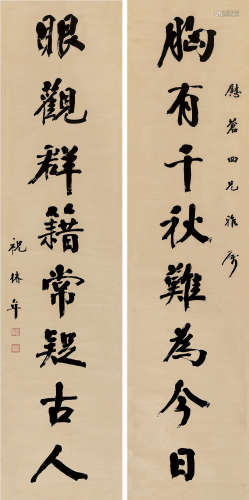 懸蒼四兄雅屬
胸有千秋難為今日
眼觀群籍常疑古人
祝椿年